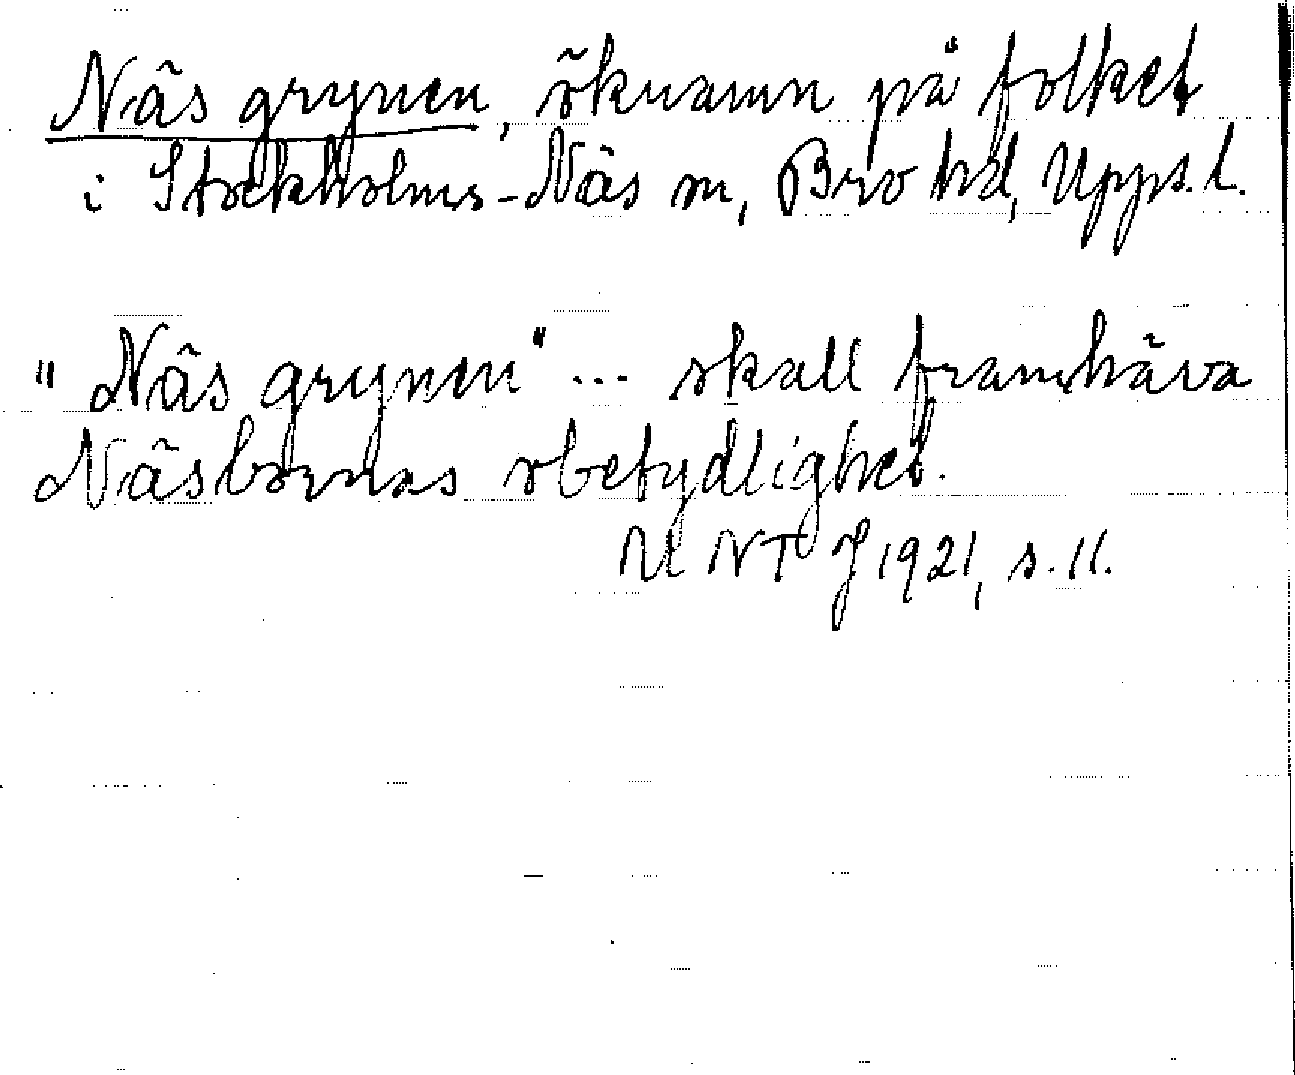 Näs grynen, öknamn på folket
i Stockholms-Näs sn, Bro hd, Upps.l.
"Näs grynen" ... skall framhäva
Näsbornas obetydlighet.
UNT J 1921, s. 11.